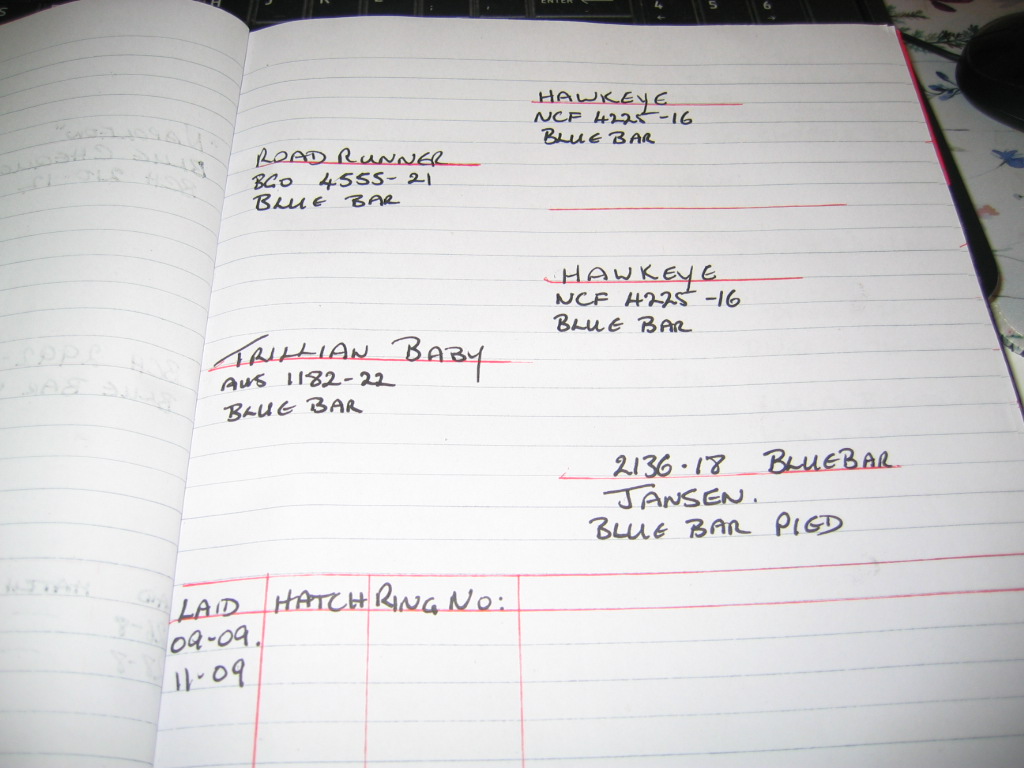 HAWKEYE
NCF 4225-16
BLUE BAR
ROAD RUNNER
BGO 4555-21
BLUE BAR
HAWKEYE
NCF 4225-16
BLUE BAR
TRILLIAN BABY
AWS 1182-22
BLUE BAR
2136.18 BLUEBAR
JANSEN.
BLUE BAR PIED
LAID HATCH RING NO:
09-09.
11-09
ENTER
4
5
6